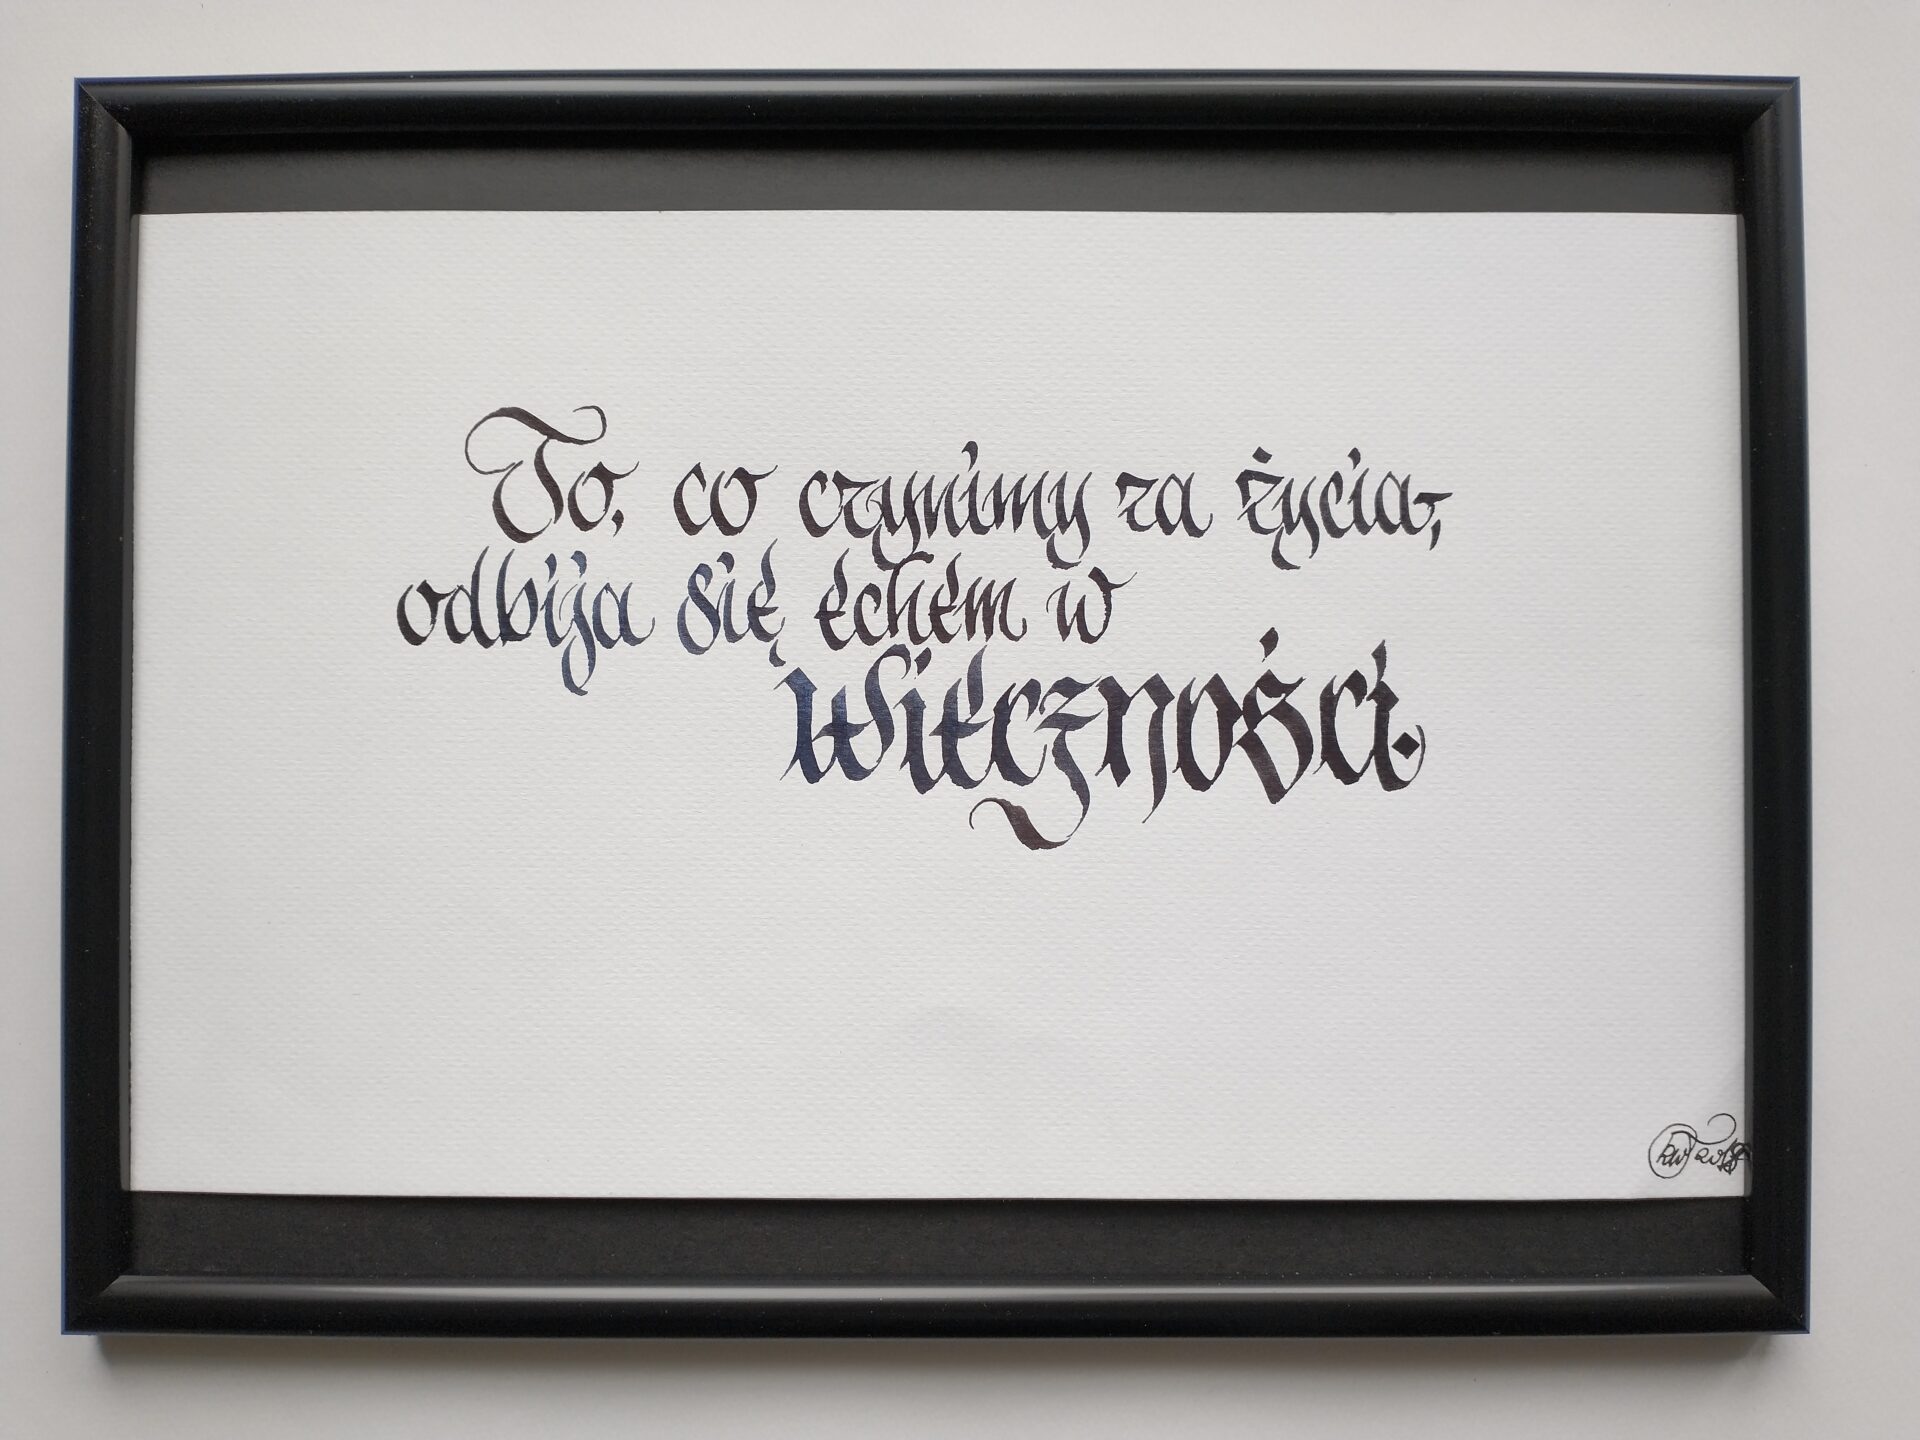 To, co czynimy za życia,
odbija się echem w
Wieczności.